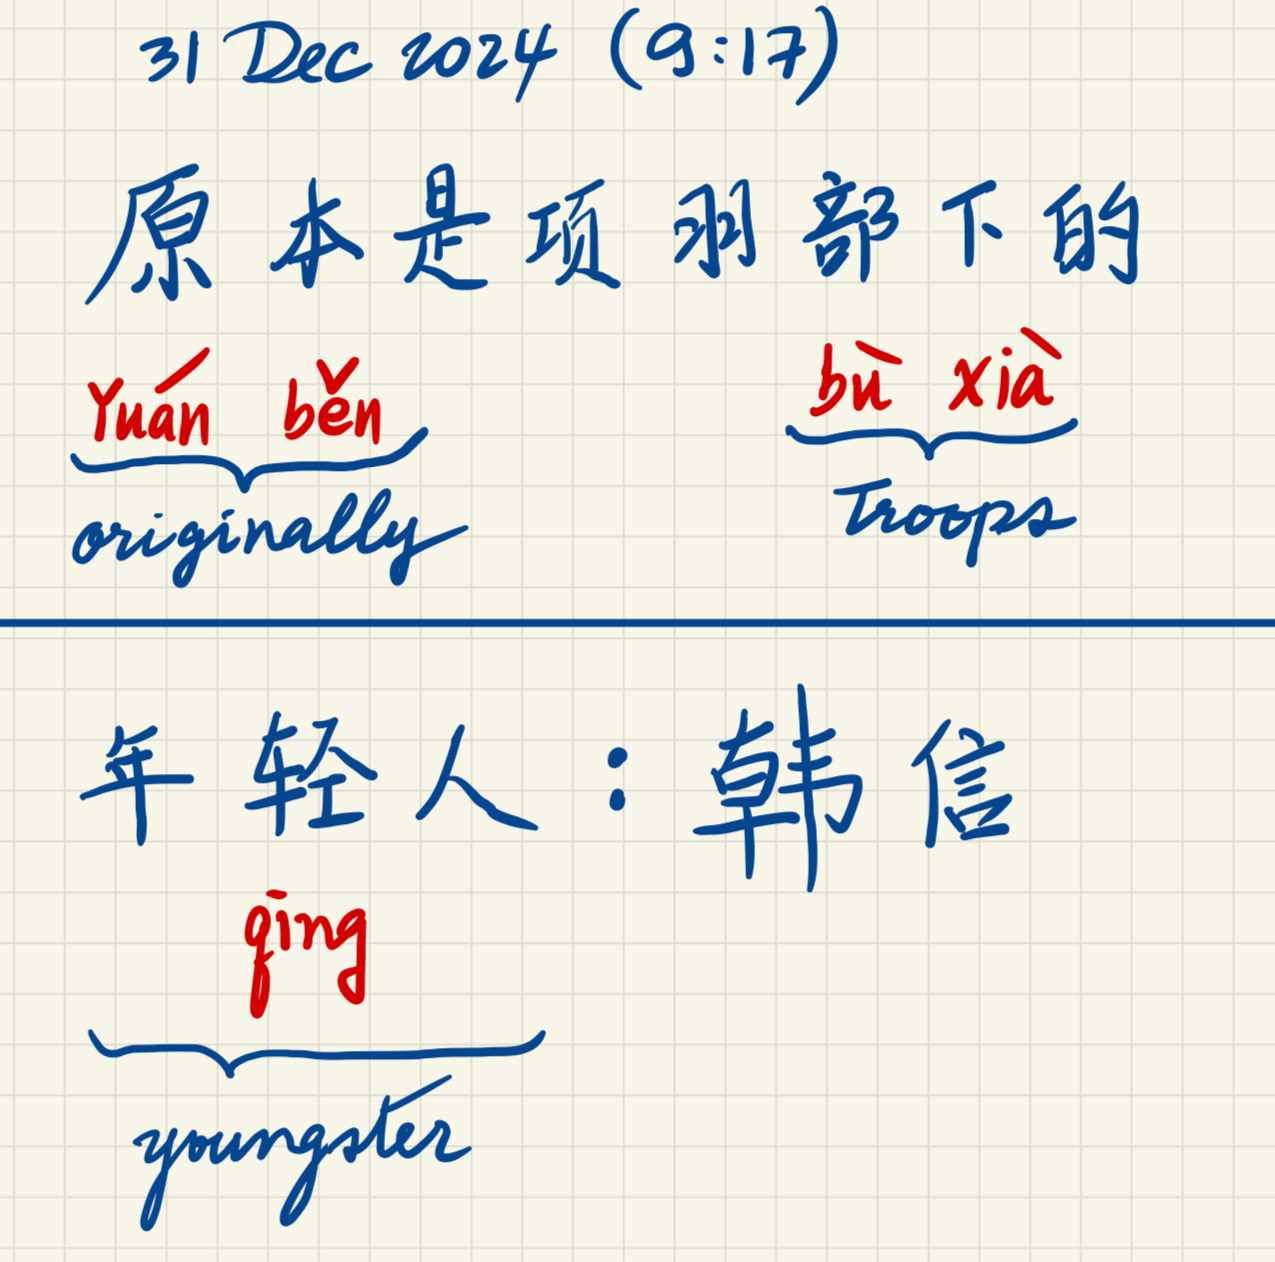 31 Dec 2024 (9:17)
原本是项羽部下的
Yuán běn bù xià
originally Troops
年轻人：韩信
qīng
youngster